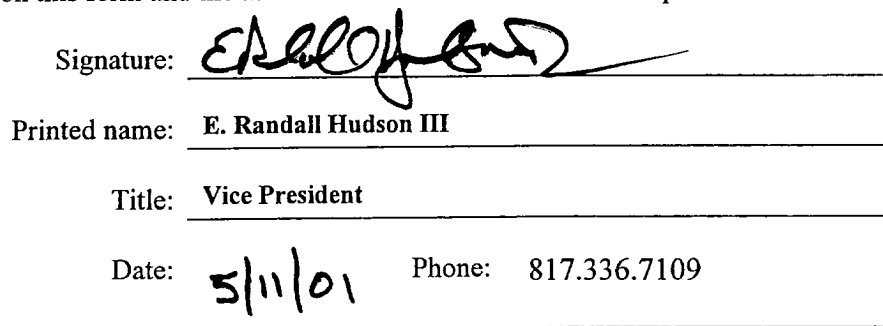 on this form and the
Signature:
Printed name: E. Randall Hudson III
Title: Vice President
Date: 5/11/01 Phone: 817.336.7109